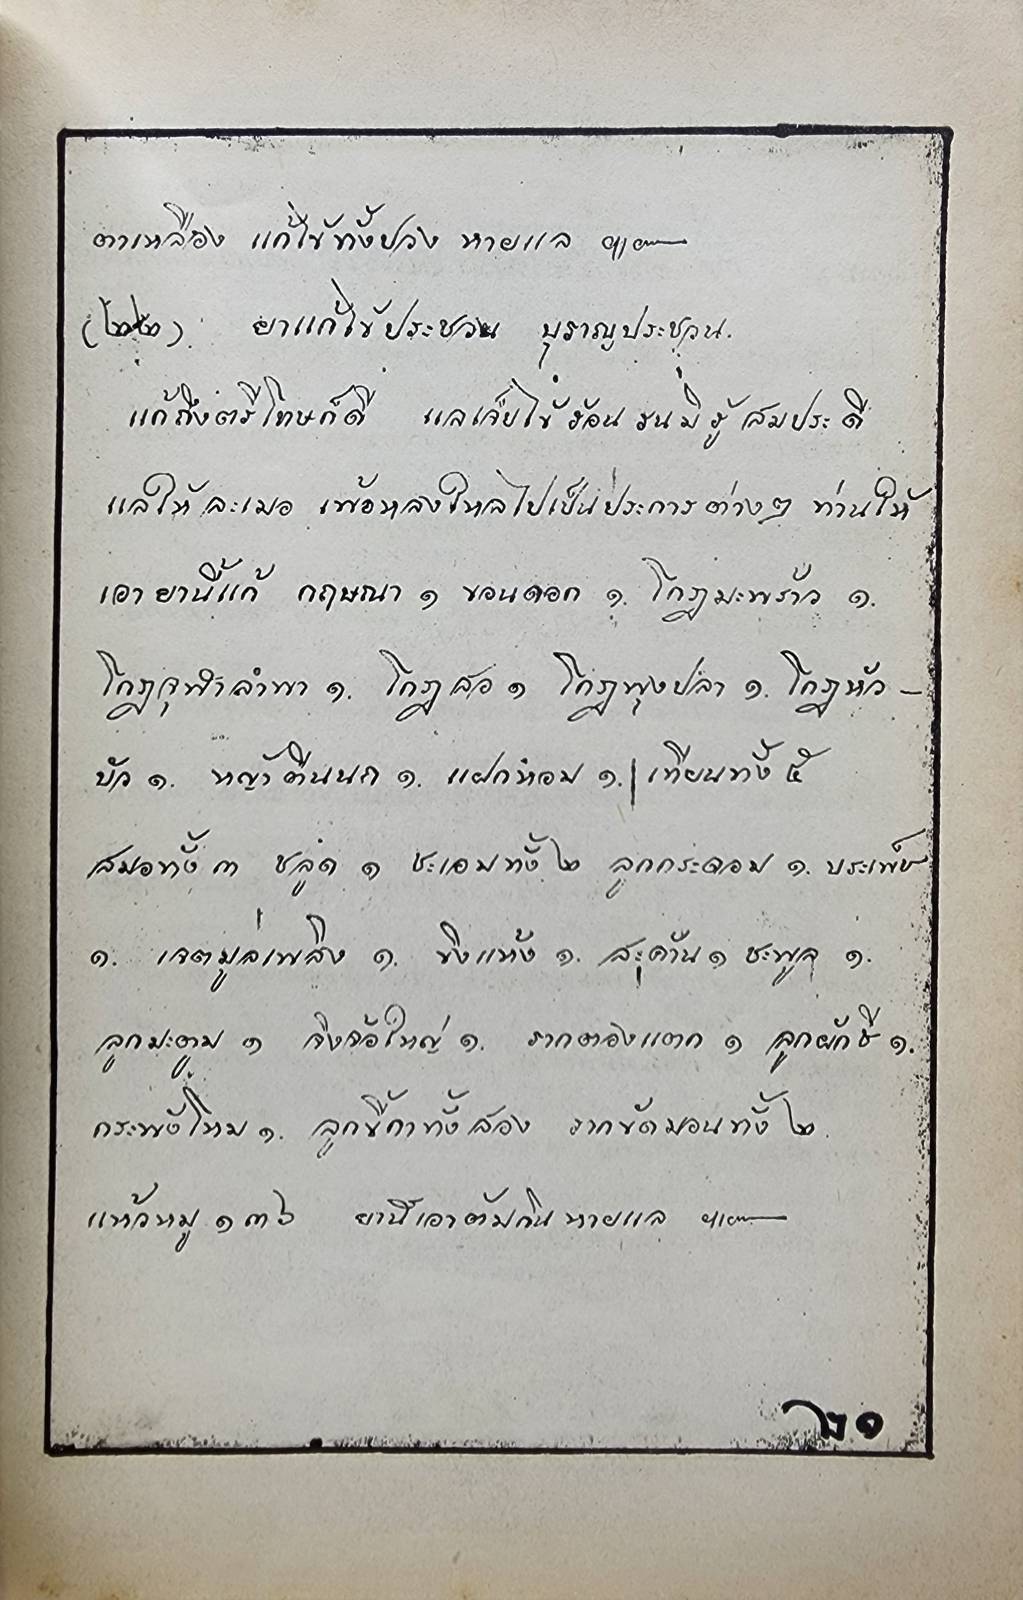 ตาเหลือง แก้ไข้ทั้งปวง หายแล ฯ|ะ—
(๒๒) ยาแก้ไข้ประชวน บุราญประชวน.
แก้ถึงตรีโทษก็ดี แลเจ็บไข้ร้อนรนมิรู้สมประดี
แลให้ละเมอ เพ้อหลงใหลไปเป็นประการต่างๆ ท่านให้
เอายานี้แก้ กฤษณา ๑ ขอนดอก ๑. โกฎมะพร้าว ๑.
โกฎจุฬาลำพา ๑. โกฎสอ ๑ โกฎพุงปลา ๑. โกฎหัว –
บัว ๑. หญ้าตีนนก ๑. แฝกหอม ๑. เทียนทั้ง ๕
สมอทั้ง ๓ ชลูด ๑ ชะเอมทั้ง ๒ ลูกกระดอม ๑. บระเพ็ช
๑. เจตมูลเพลิง ๑. ขิงแห้ง ๑. สะค้าน ๑ ชะพูล ๑.
ลูกมะตูม ๑ จิงจ้อใหญ่ ๑. รากตองแตก ๑ ลูกผักชี ๑.
กระพังโหม ๑. ลูกขี้กาทั้งสอง รากขัดมอนทั้ง ๒.
แห้วหมู ๑ ๓๖ ยานี้เอาต้มกินหายแล ฯ|ะ—
๒๑